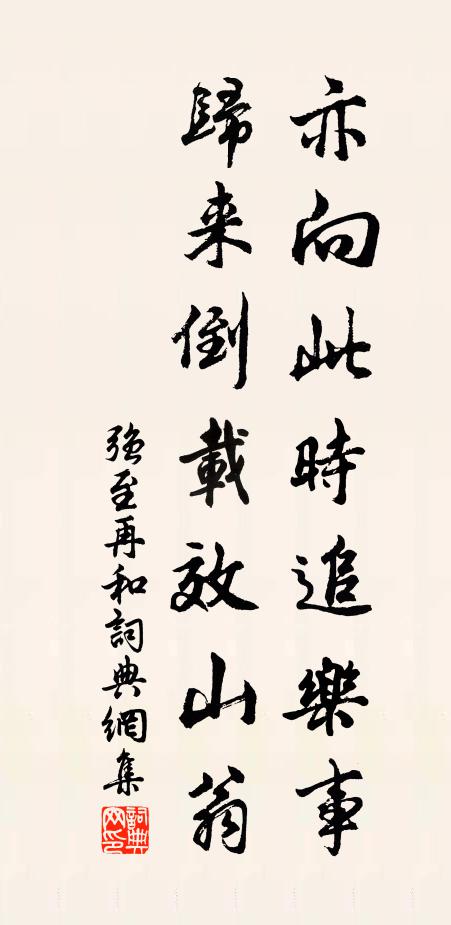 亦向此時追樂事
歸来倒載效山翁
強至再和詞典網集
詞典网印